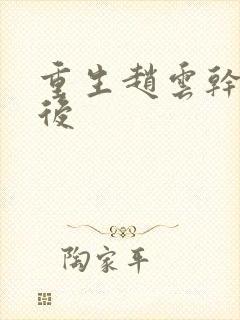 重生趙雲幹
後
陶家平